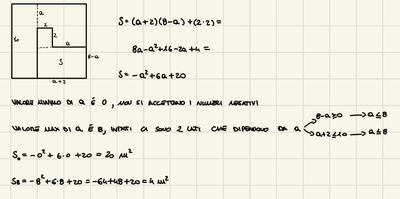 a
2
2
10
a
8-a
S
a+2
S=(a+2)(8-a)+(2·2)=
8a-a²+16-2a+4=
S=-a²+6a+20
VALORE MINIMO DI a È 0, NON SI ACCETTANO I NUMERI NEGATIVI
VALORE MAX DI a È 8, INFATTI CI SONO 2 LATI CHE DIPENDONO DA a
8-a≥0 → a≤8
a+2≤10 → a≤8
S₀=-0²+6·0+20=20 m²
S8=-8²+6·8+20=-64+48+20=4 m²